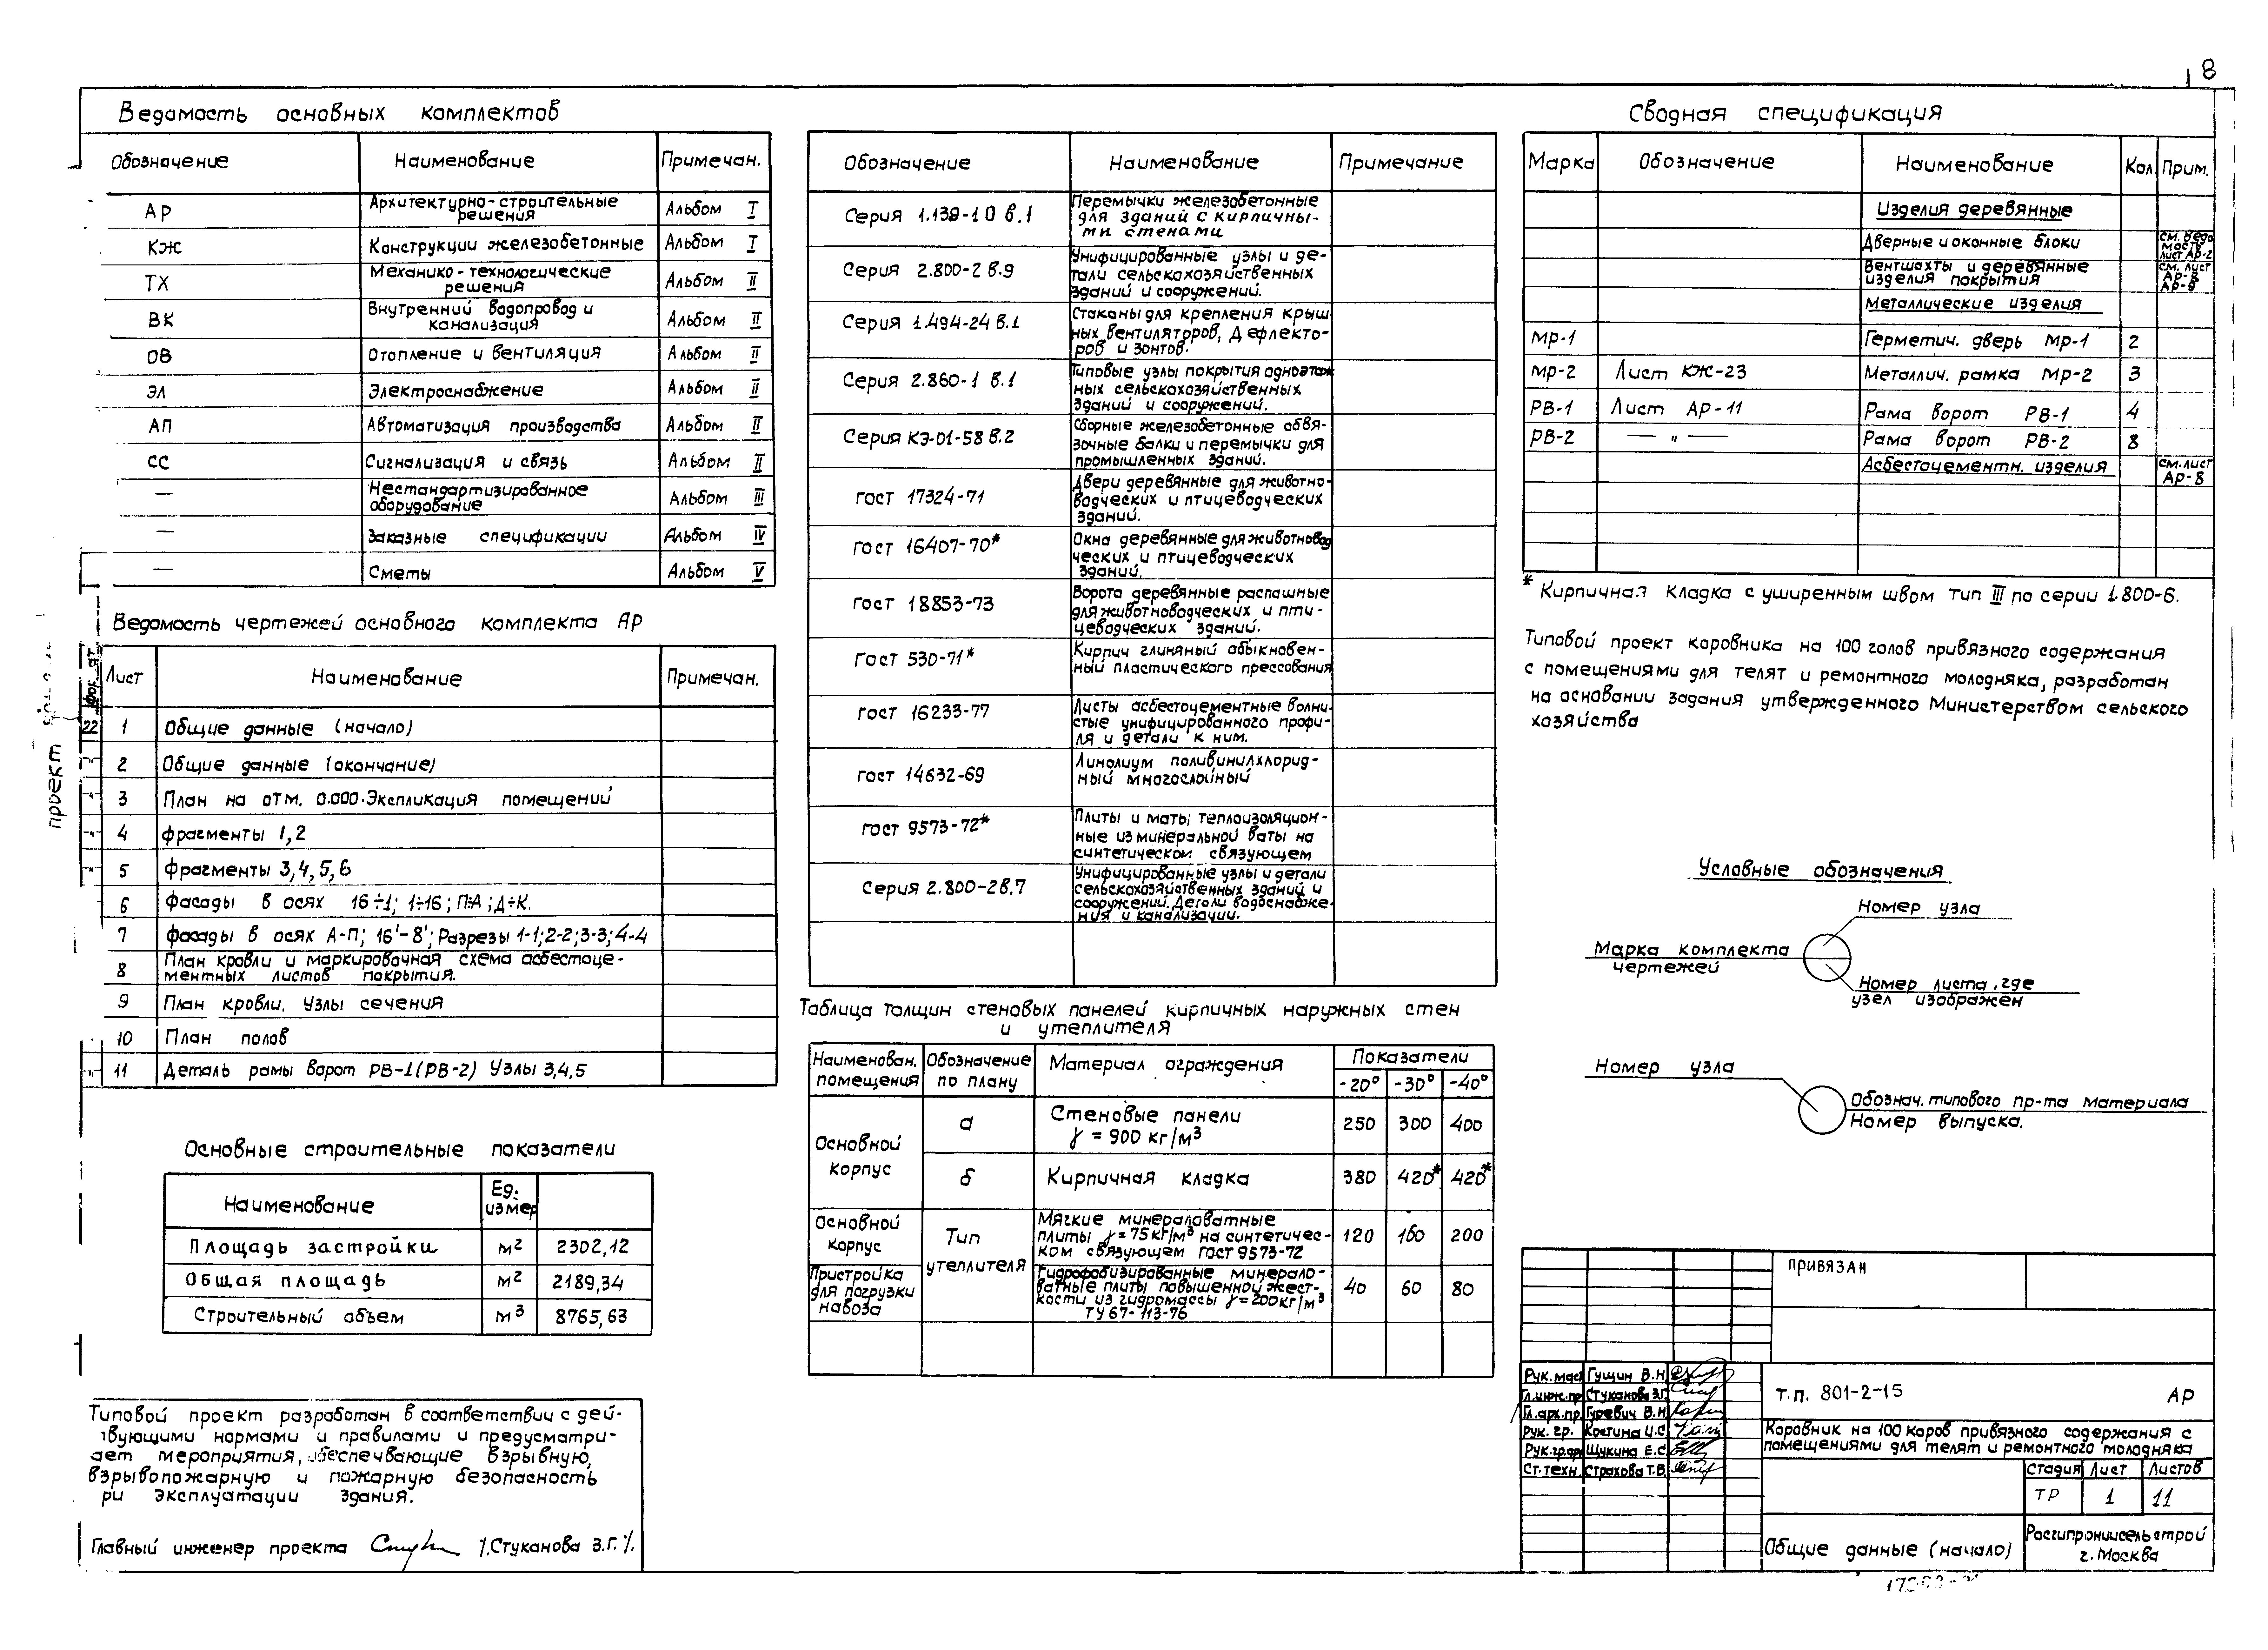 8
Ведомость основных комплектов
Обозначение Наименование Примечан.
АР Архитектурно-строительные решения Альбом I
КЖ Конструкции железобетонные Альбом I
ТХ Механико-технологические решения Альбом II
ВК Внутренний водопровод и канализация Альбом II
ОВ Отопление и вентиляция Альбом II
ЭЛ Электроснабжение Альбом II
АП Автоматизация производства Альбом II
СС Сигнализация и связь Альбом II
— Нестандартизированное оборудование Альбом III
— Заказные спецификации Альбом IV
— Сметы Альбом V
Ведомость чертежей основного комплекта АР
Лист Наименование Примечан.
22 1 Общие данные (начало)
-"- 2 Общие данные (окончание)
-"- 3 План на отм. 0.000. Экспликация помещений
-"- 4 фрагменты 1,2
-"- 5 фрагменты 3,4,5,6
6 фасады в осях 16÷1; 1÷16; П÷А; Д÷К.
7 фасады в осях А-П; 16'-8'; Разрезы 1-1; 2-2; 3-3; 4-4
8 План кровли и маркировочная схема асбестоце-
ментных листов покрытия.
9 План кровли. Узлы сечения
10 План полов
-"- 11 Деталь рамы ворот РВ-1(РВ-2) Узлы 3,4,5
проект
Основные строительные показатели
Наименование Ед. измер
Площадь застройки м² 2302,12
Общая площадь м² 2189,34
Строительный объем м³ 8765,63
Типовой проект разработан в соответствии с дей-
твующими нормами и правилами и предусматри-
ает мероприятия, обеспечвающие взрывную,
взрывопожарную и пожарную безопасность
ри эксплуатации здания.
Главный инженер проекта /.Стуканова З.Г./.
Обозначение Наименование Примечание
Серия 1.139-10 в.1 Перемычки железобетонные
для зданий с кирпичны-
ми стенами
Серия 2.800-2 в.9 Унифицированные узлы и де-
тали сельскохозяйственных
зданий и сооружений.
Серия 1.494-24 в.1 Стаканы для крепления крыш
ных вентиляторов, Дефлекто-
ров и зонтов.
Серия 2.860-1 в.1 Типовые узлы покрытия одноэтаж
ных сельскохозяйственных
зданий и сооружений.
Серия КЭ-01-58 в.2 Сборные железобетонные обвя-
зочные балки и перемычки для
промышленных зданий.
гост 17324-71 Двери деревянные для животно-
водческих и птицеводческих
зданий.
гост 16407-70* Окна деревянные для животновод
ческих и птицеводческих
зданий.
гост 18853-73 Ворота деревянные распашные
для животноводческих и пти-
цеводческих зданий.
гост 530-71* Кирпич глиняный обыкновен-
ный пластического прессования
гост 16233-77 Листы асбестоцементные волни-
стые унифицированного профи-
ля и детали к ним.
гост 14632-69 Линолиум поливинилхлорид-
ный многослойный
гост 9573-72* Плиты и маты теплоизоляцион-
ные из минеральной ваты на
синтетическом связующем
Серия 2.800-2в.7 Унифицированные узлы и детали
сельскохозяйственных зданий и
сооружений. Детали водоснабже-
ния и канализации.
Таблица толщин стеновых панелей кирпичных наружных стен
и утеплителя
Наименован. помещения Обозначение по плану Материал ограждения Показатели
-20° -30° -40°
Основной корпус а Стеновые панели γ = 900 кг/м³ 250 300 400
б Кирпичная кладка 380 420* 420*
Основной корпус Тип утеплителя Мягкие минераловатные
плиты γ = 75кг/м³ на синтетичес-
ком связующем гост 9573-72 120 160 200
Пристройка для погрузки навоза Гидрофобизированные минерало-
ватные плиты повышенной жест-
кости из гидромассы γ = 200кг/м³
ТУ 67-113-76 40 60 80
Сводная спецификация
Марка Обозначение Наименование Кол. Прим.
Изделия деревянные
Дверные и оконные блоки см. ведо мость лист АР-2
Вентшахты и деревянные изделия покрытия см. лист АР-8 АР-9
Металлические изделия
МР-1 Герметич. дверь МР-1 2
МР-2 Лист КЖ-23 Металлич. рамка МР-2 3
РВ-1 Лист АР-11 Рама ворот РВ-1 4
РВ-2 — " — Рама ворот РВ-2 8
Асбестоцементн. изделия см. лист АР-8
* Кирпичная кладка с уширенным швом тип III по серии 1.800-6.
Типовой проект коровника на 100 голов привязного содержания
с помещениями для телят и ремонтного молодняка, разработан
на основании задания утвержденного Министерством сельского
хозяйства
Условные обозначения
Номер узла
Марка комплекта
чертежей
Номер листа, где
узел изображен
Номер узла
Обознач. типового пр-та материала
Номер выпуска.
привязан
Рук. мас Гущин В.Н.
Гл.инж.пр. Стуканова З.Г.
Гл.арх.пр. Гуревич В.Н.
Рук. гр. Костина Ц.С.
Рук.гр. Щукина Е.С.
Ст. техн. Страхова Т.В.
т.п. 801-2-15 АР
Коровник на 100 коров привязного содержания с
помещениями для телят и ремонтного молодняка
Стадия Лист Листов
ТР 1 11
Общие данные (начало)
Росгипрониисельстрой
г. Москва